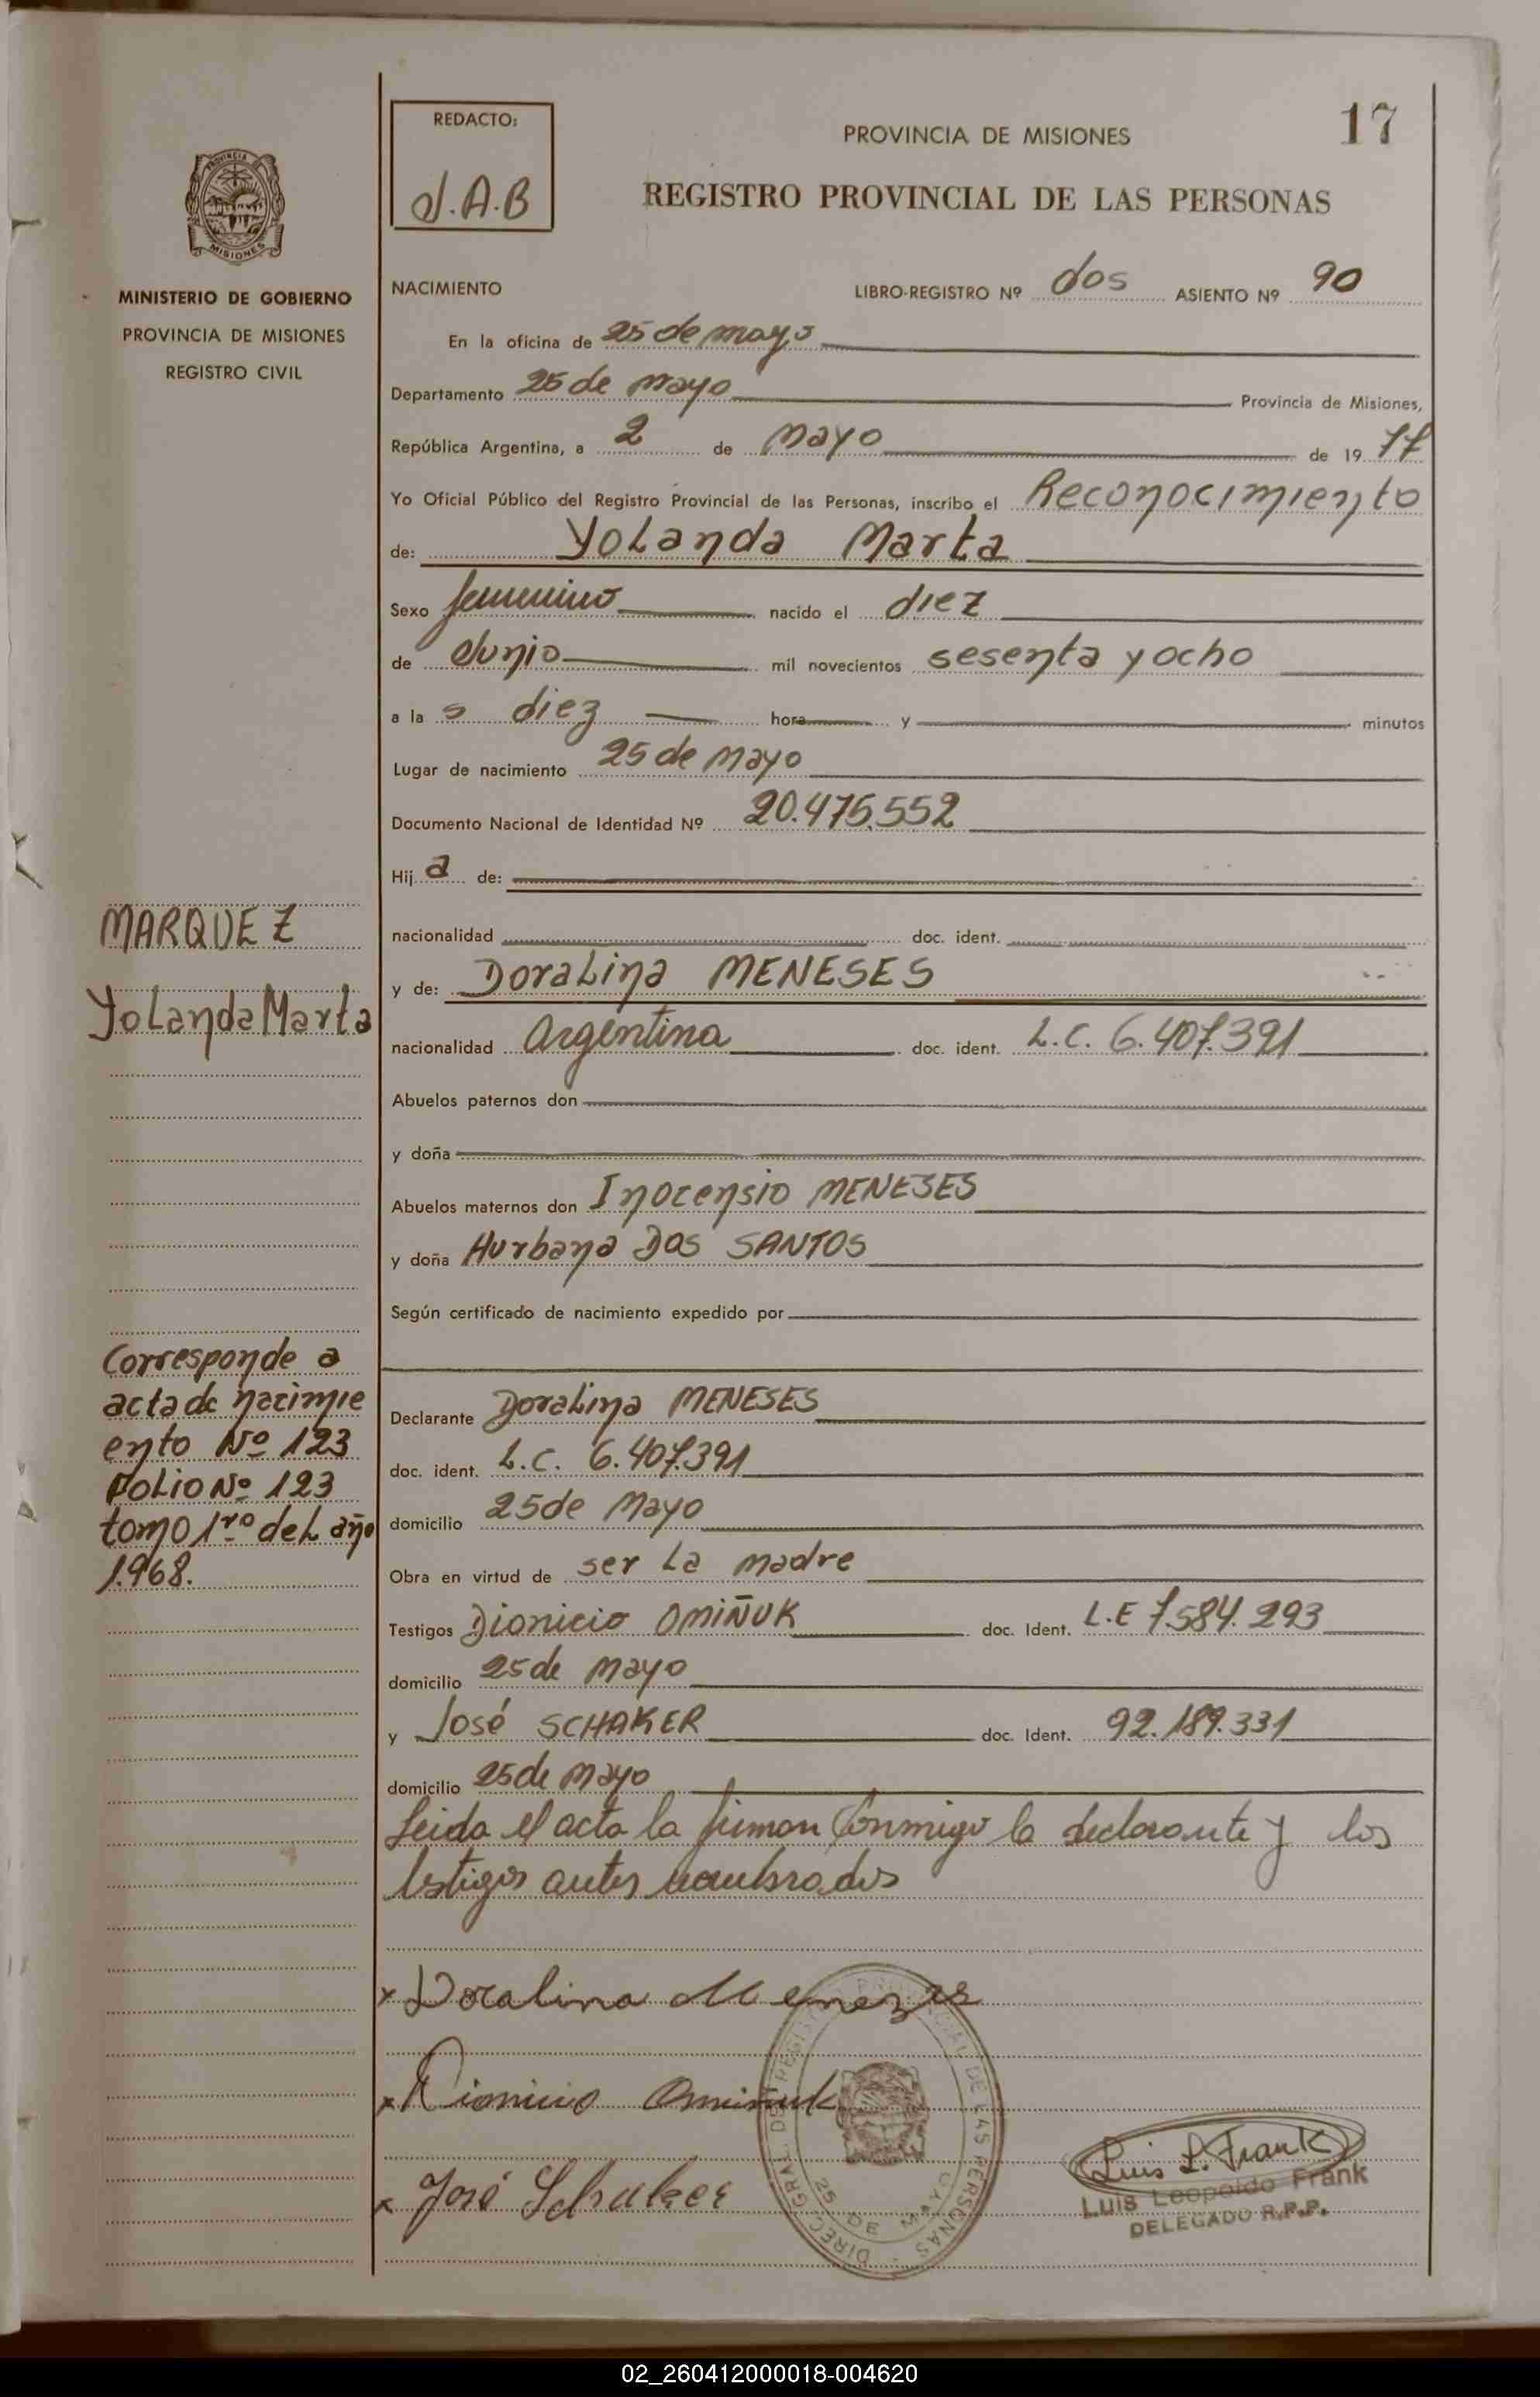 17
REDACTO:
J.A.B
PROVINCIA DE MISIONES
REGISTRO PROVINCIAL DE LAS PERSONAS
PROVINCIA
MISIONES
MINISTERIO DE GOBIERNO
PROVINCIA DE MISIONES
REGISTRO CIVIL
NACIMIENTO LIBRO-REGISTRO Nº dos ASIENTO Nº 90
En la oficina de 25 de mayo
Departamento 25 de mayo Provincia de Misiones,
República Argentina, a 2 de mayo de 19 77
Yo Oficial Público del Registro Provincial de las Personas, inscribo el Reconocimiento
de: Yolanda Marta
Sexo femenino nacido el diez
de Junio mil novecientos sesenta y ocho
a la s diez hora y minutos
Lugar de nacimiento 25 de mayo
Documento Nacional de Identidad Nº 20.475.552
Hij a de:
nacionalidad doc. ident.
y de: Doralina MENESES
nacionalidad Argentina doc. ident. L.C. 6.407.391
Abuelos paternos don
y doña
Abuelos maternos don Inocensio MENESES
y doña Hurbana DOS SANTOS
Según certificado de nacimiento expedido por
Declarante Doralina MENESES
doc. ident. L.C. 6.407.391
domicilio 25 de Mayo
Obra en virtud de ser la madre
Testigos Dionicio OMIÑUK doc. Ident. L.E 7.584.293
domicilio 25 de mayo
y José SCHAKER doc. Ident. 92.189.331
domicilio 25 de mayo
Leida el acta la firman Conmigo la declarante y los
testigos antes nombrados
MARQUEZ
Yolanda Marta
Corresponde a
acta de nacimie
ento Nº 123
FOLIO Nº 123
tomo 1ro del año
1.968.
x Doralina Menezes
x Dionicio Omiñuk
x José Schaker
DIREC. GRAL. DEL REGISTRO PROVINCIAL DE LAS PERSONAS
25 DE MAYO
Luis L. Frank
Luis Leopoldo Frank
DELEGADO R.P.P.
02_260412000018-004620